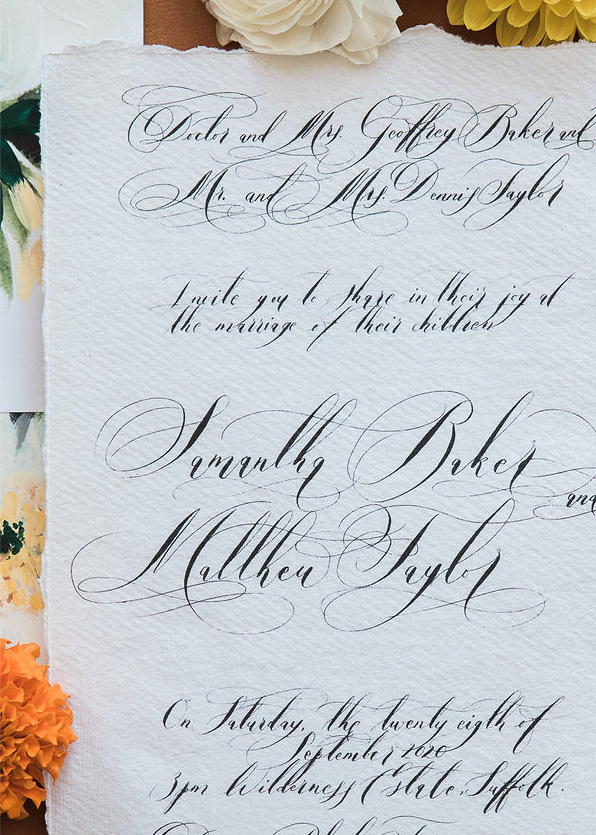 Doctor and Mrs. Geoffrey Baker and
Mr. and Mrs. Dennis Taylor
Invite you to share in their joy at
the marriage of their children
Samantha Baker
and
Matthew Taylor
On Saturday, the twenty eigth of
September 2020
3pm Wilderness Estate, Suffolk.